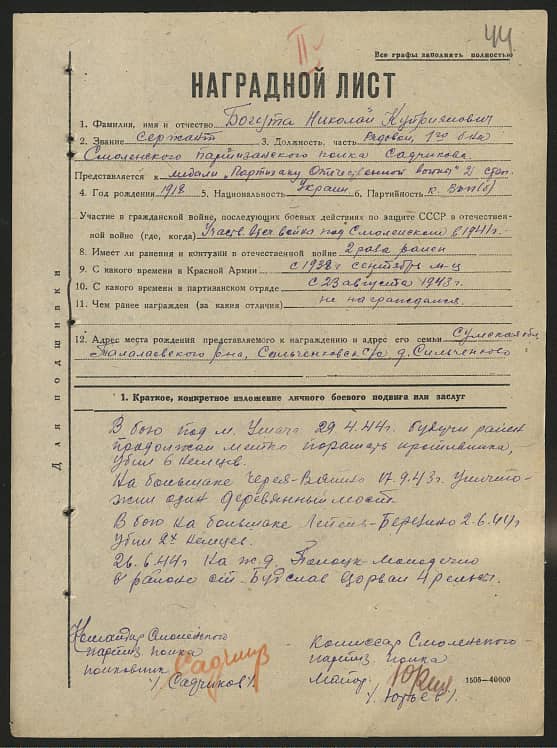 II
44
Все графы заполнять полностью
НАГРАДНОЙ ЛИСТ
1. Фамилия, имя и отчество Богута Николай Куприянович
2. Звание Сержант 3. Должность, часть Рядовой, 1го б-на
Смоленского партизанского полка Садчикова.
Представляется к медали „Партизану Отечественной войны" 2 степ.
4. Год рождения 1918 5. Национальность Украин 6. Партийность к. ВКП(б)
Участие в гражданской войне, последующих боевых действиях по защите СССР в отечествен-
ной войне (где, когда) Участв. Отеч война под Смоленском в 1941 г.
8. Имеет ли ранения и контузии в отечественной войне 2 раза ранен
9. С какого времени в Красной Армии с 1938 г сентябрь м-ц
10. С какого времени в партизанском отряде с 23 августа 1943 г.
11. Чем ранее награжден (за какие отличия) не награждался.
12. Адрес места рождения представляемого к награждению и адрес его семьи Сумская обл
Талалаевского р-на, с/с д. Сильченково
Для подшивки
1. Краткое, конкретное изложение личного боевого подвига или заслуг
В бою под м. Ушача 29.4.44 г. будучи ранен
продолжал метко поражать противника,
убил 6 немцев.
На большаке Черея- 17.9.43 г. уничто-
жил один деревянный мост.
В бою на большаке Лепель-Березино 2.6.44 г
убил 2х немцев.
26.6.44 г на ж.д. Полоцк-Молодечно
в районе ст. Будслав взорвал 4 рельсы.
Командир Смоленского
партиз полка
полковник
/Садчиков/
Комиссар Смоленского
партиз. полка
майор
/Юрьев/
1505-40000